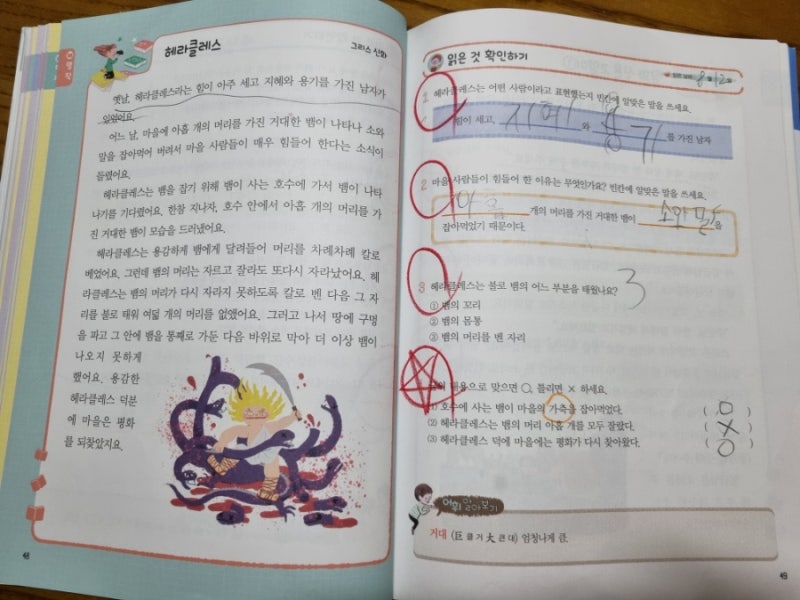 헤라클레스
그리스 신화
옛날, 헤라클레스라는 힘이 아주 세고 지혜와 용기를 가진 남자가
있었어요.
어느 날, 마을에 아홉 개의 머리를 가진 거대한 뱀이 나타나 소와
말을 잡아먹어 버려서 마을 사람들이 매우 힘들어 한다는 소식이
들렸어요.
헤라클레스는 뱀을 잡기 위해 뱀이 사는 호수에 가서 뱀이 나타
나기를 기다렸어요. 한참 지나자, 호수 안에서 아홉 개의 머리를 가
진 거대한 뱀이 모습을 드러냈어요.
헤라클레스는 용감하게 뱀에게 달려들어 머리를 차례차례 칼로
베었어요. 그런데 뱀의 머리는 자르고 잘라도 또다시 자라났어요. 헤
라클레스는 뱀의 머리가 다시 자라지 못하도록 칼로 벤 다음 그 자
리를 불로 태워 여덟 개의 머리를 없앴어요. 그러고 나서 땅에 구멍
을 파고 그 안에 뱀을 통째로 가둔 다음 바위로 막아 더 이상 뱀이
나오지 못하게
했어요. 용감한
헤라클레스 덕분
에 마을은 평화
를 되찾았지요.
48
읽은 것 확인하기
8월 12일
1 헤라클레스는 어떤 사람이라고 표현했는지 빈칸에 알맞은 말을 쓰세요.
힘이 세고, 지혜 와 용기 를 가진 남자
2 마을 사람들이 힘들어 한 이유는 무엇인가요? 빈칸에 알맞은 말을 쓰세요.
아홉 개의 머리를 가진 거대한 뱀이 소와 말 을
잡아먹었기 때문이다.
3 헤라클레스는 불로 뱀의 어느 부분을 태웠나요? 3
① 뱀의 꼬리
② 뱀의 몸통
③ 뱀의 머리를 벤 자리
내용으로 맞으면 ○, 틀리면 × 하세요.
(1) 호수에 사는 뱀이 마을의 가축을 잡아먹었다. ( ○ )
(2) 헤라클레스는 뱀의 머리 아홉 개를 모두 잘랐다. ( × )
(3) 헤라클레스 덕에 마을에는 평화가 다시 찾아왔다. ( ○ )
어휘 알아보기
거대 (巨 클 거 大 큰 대) 엄청나게 큼.
49